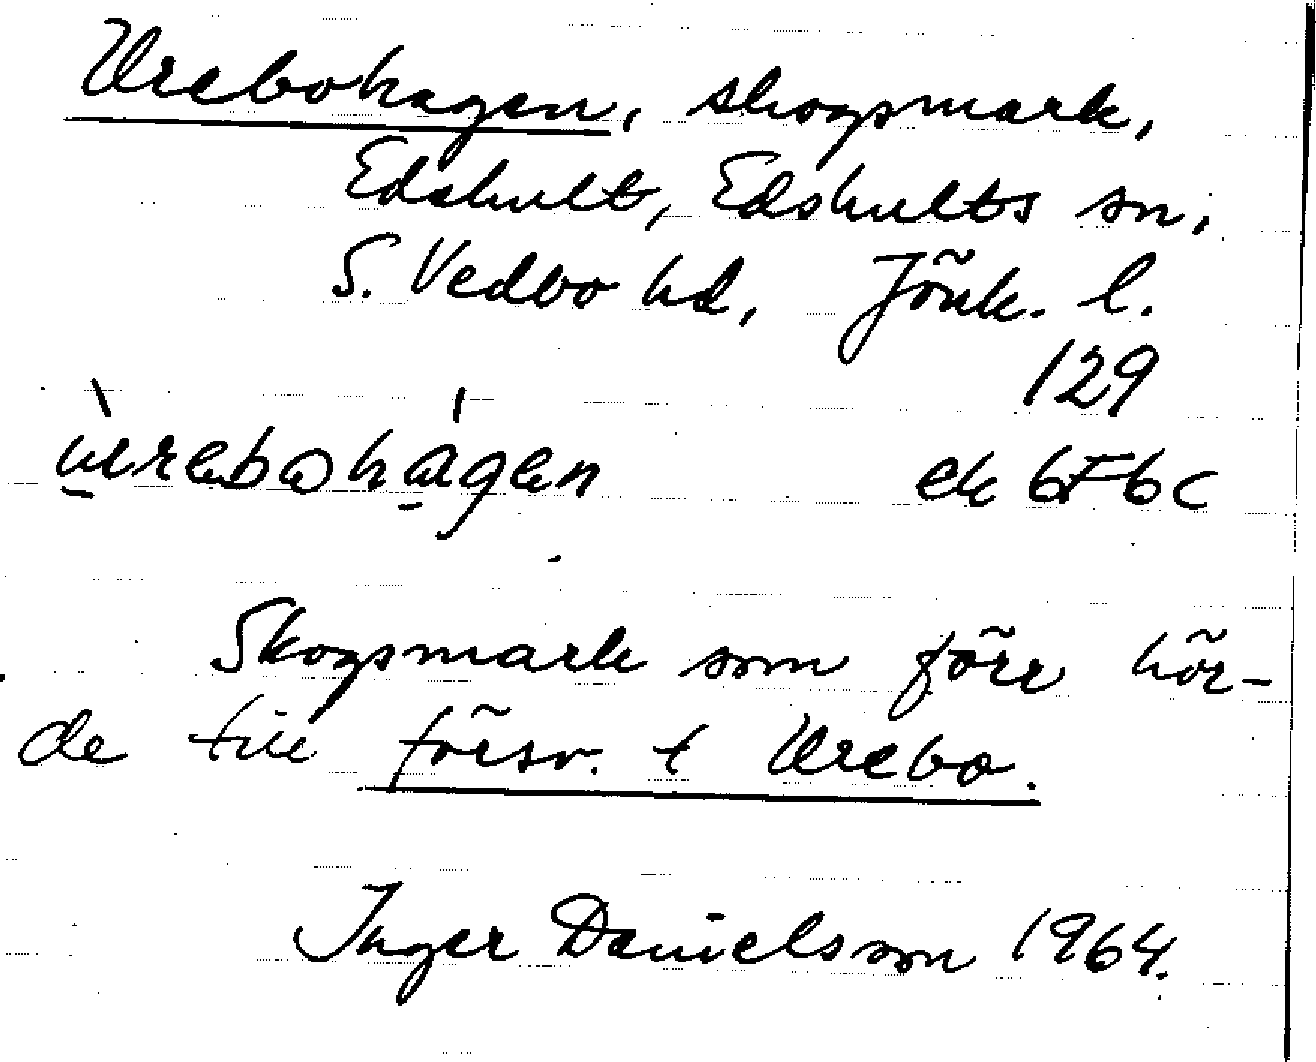 Urebohagen, skogsmark,
Edshult, Edshults sn,
S. Vedbo hd, Jönk. l.
129
ek 6F6c
Skogsmark som förr hör-
de till försv. t Urebo.
Inger Danielsson 1964.